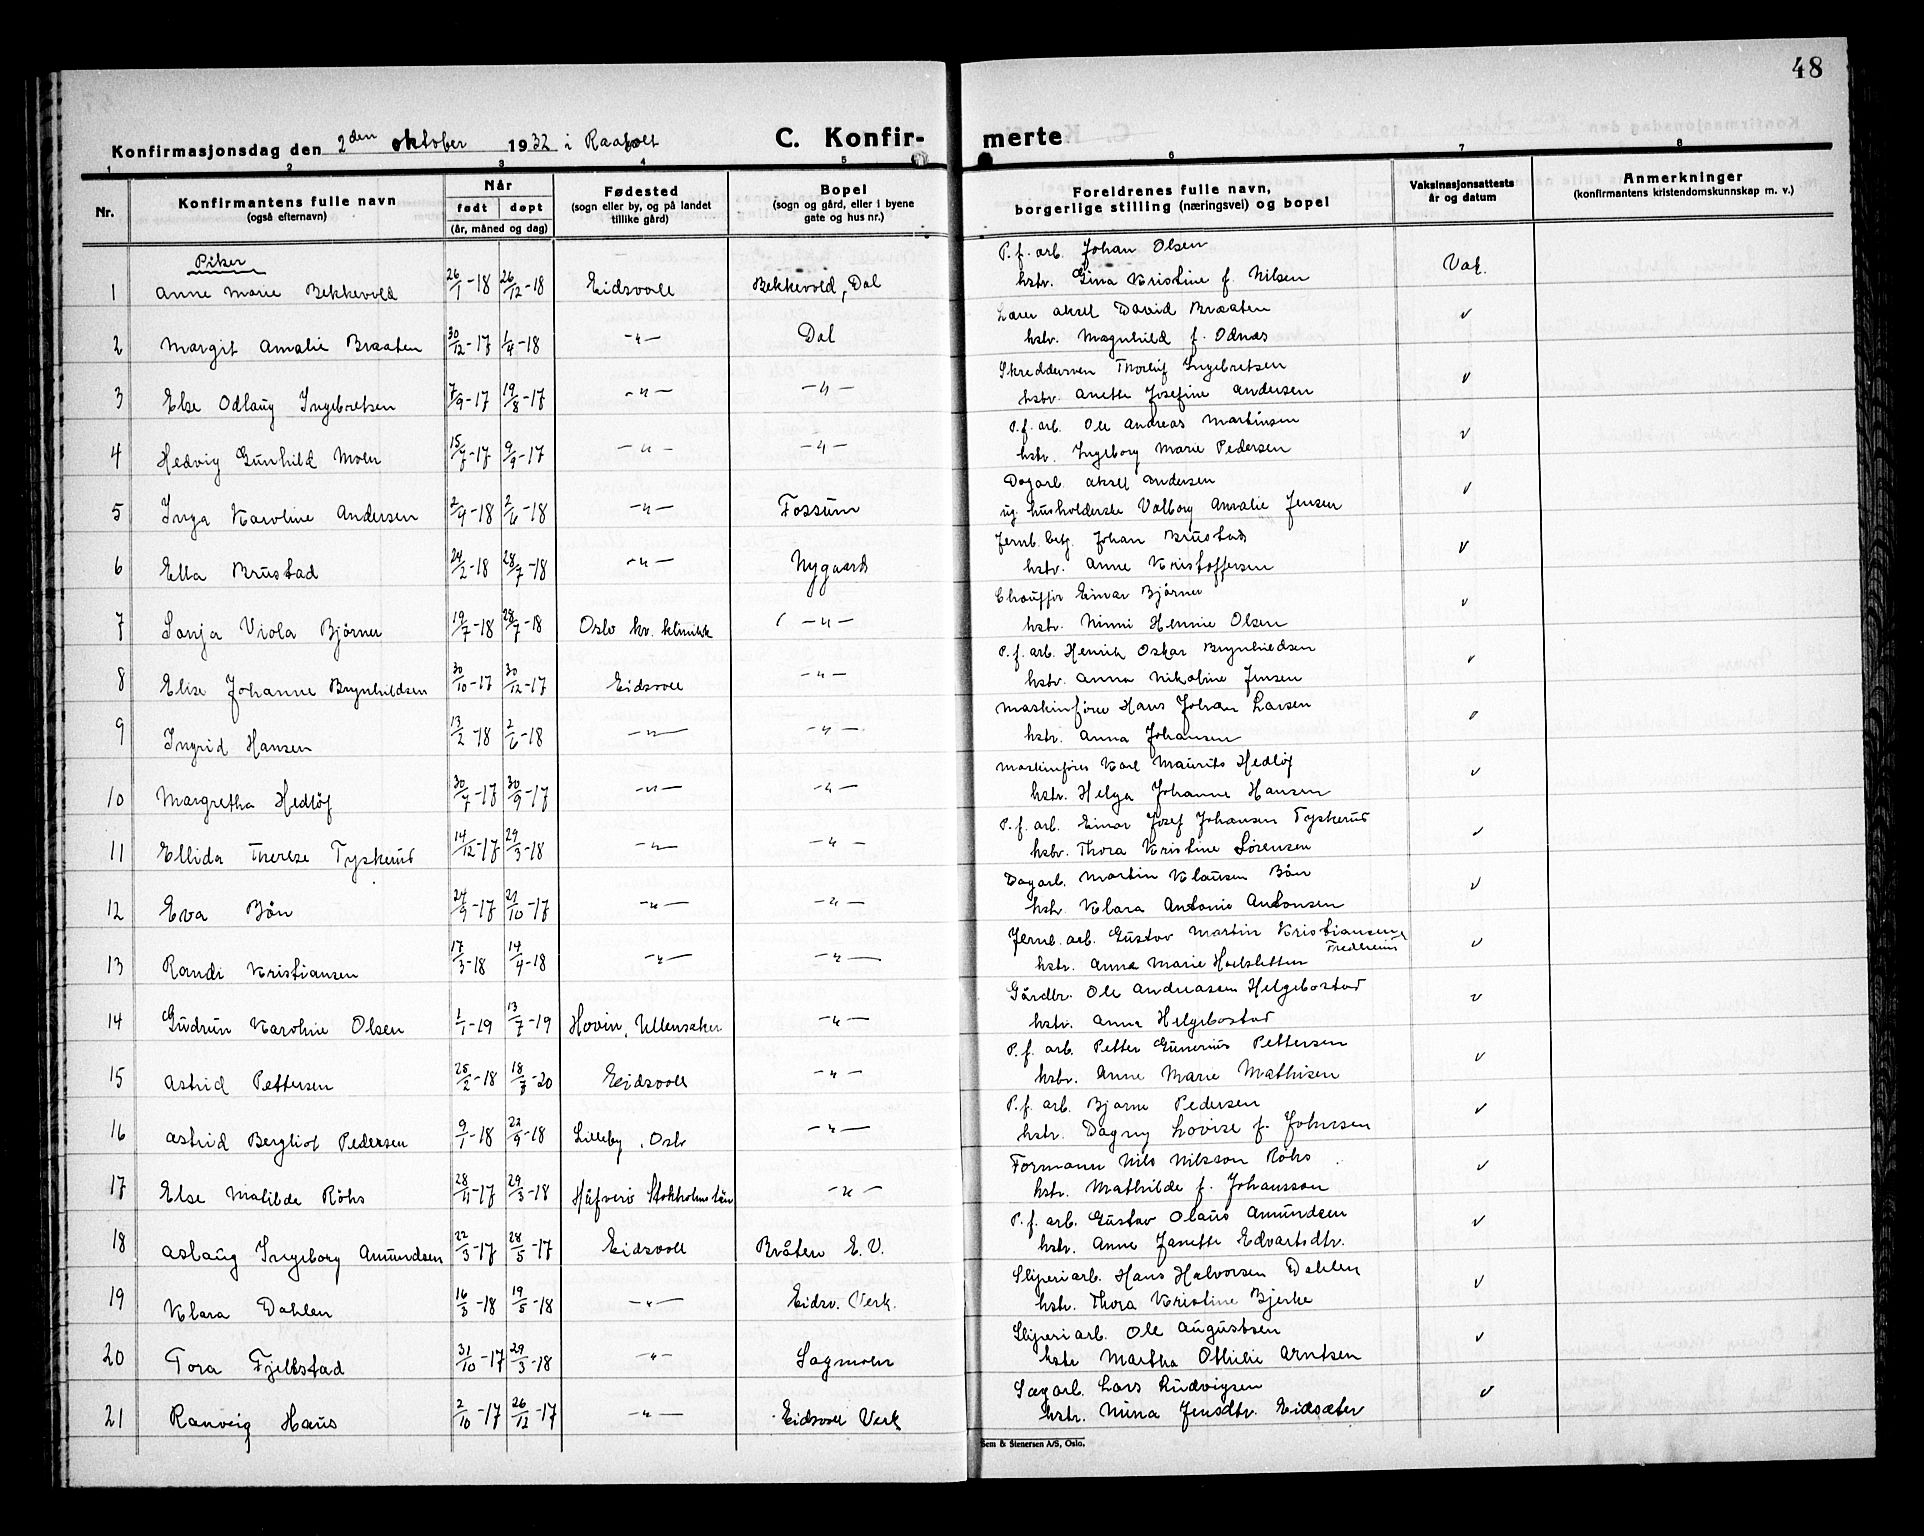 48
Konfirmasjonsdag den 2den oktober 1932 i Raaholt
C. Konfir-merte
1 2 3 4 5 6 7 8
Nr. Konfirmantens fulle navn (også efternavn) Når født døpt (år, måned og dag) Fødested (sogn eller by, og på landet tillike gård) Bopel (sogn og gård, eller i byene gate og hus nr.) Foreldrenes fulle navn, borgerlige stilling (næringsvei) og bopel Vaksinasjonsattests år og datum Anmerkninger (konfirmantens kristendomskunnskap m. v.)
Piker
P. f. arb. Johan Olsen
1 Anne Marie Bekkevold 26/1-18 26/12-18 Eidsvoll Bekkevold, Dal hstr. Gina Kristine f. Nilsen Vak.
Lærer Aksel David Braaten
2 Margit Amalie Braaten 30/12-17 1/4-18 -"- Dal hstr. Magnhild f. Odnæs v
Skreddersven Thorleif Ingebretsen
3 Else Odlaug Ingebretsen 7/9-17 19/8-17 -"- -"- hstr. Anette Josefine Andersen v
P. f. arb. Ole Andreas Martinsen
4 Hedvig Gunhild Moen 15/7-17 9/9-17 -"- -"- hstr. Ingeborg Marie Pedersen v
Dagarb. Aksel Andersen
5 Inga Karoline Andersen 2/9-18 2/6-18 -"- Fossum ug. husholderske Valborg Amalie Jensen v
Jernb. betj. Johan Brustad
6 Ella Brustad 24/2-18 28/7-18 -"- Nygaard hstr. Anne Kristoffersen v
Chauffør Einar Bjørner
7 Sonja Viola Bjørner 19/7-18 28/7-18 Oslo kv. klinikk -"- hstr. Ninni Hennie Olsen v
P. f. arb. Henrik Oskar Brynhildsen
8 Elise Johanne Brynhildsen 30/10-17 30/12-17 Eidsvoll -"- hstr. Anna Nikoline Jensen v
Maskinfører Hans Johan Larsen
9 Ingrid Hansen 13/2-18 2/6-18 -"- -"- hstr. Anna Johansen v
Maskinfører Karl Maurits Hedlöf
10 Margretha Hedlöf 30/7-17 30/9-17 -"- -"- hstr. Helga Johanne Hansen v
P. f. arb. Einar Josef Johansen Tyskerud
11 Ellida Therese Tyskerud 14/12-17 29/3-18 -"- -"- hstr. Thora Kristine Sørensen v
Dagarb. Martin Klausen Bön
12 Eva Bön 24/9-17 21/10-17 -"- -"- hstr. Klara Antonie Antonsen v
Jernb. arb. Gustav Martin Kristiansen
13 Randi Kristiansen 17/3-18 14/4-18 -"- -"- hstr. Anna Marie Holsletten v
Gårdbr. Ole Andreasen Helgebostad
14 Gudrun Karoline Olsen 1/1-19 13/7-19 Hovin, Ullensaker -"- hstr. Anna Helgebostad v
P. f. arb. Petter Gunerius Pettersen
15 Astrid Pettersen 25/2-18 18/3-20 Eidsvoll -"- hstr. Anne Marie Mathisen v
P. f. arb. Bjarne Pedersen
16 Astrid Bergliot Pedersen 9/1-18 22/9-18 Lilleby, Oslo -"- hstr. Dagny Lovise f. Johnsen v
Formann Nils Nilsson Röhs
17 Else Matilde Röhs 28/11-17 29/3-18 Häfverö Stokholms län -"- hstr. Mathilde f. Johansson v
P. f. arb. Gustav Olaus Amundsen
18 Aslaug Ingeborg Amundsen 22/3-17 28/5-17 Eidsvoll Bråten E. V. hstr. Anne Janette Edvartsdtr. v
Sliperiarb. Hans Halvorsen Dahlen
19 Klara Dahlen 16/3-18 19/5-18 -"- Eidsv. Verk. hstr. Thora Kristine Bjerke v
Sliperiarb. Ole Augustsen
20 Tora Fjellstad 31/10-17 29/3-18 -"- Sagmoen hstr. Martha Othilie Arntsen v
Sagarb. Lars Ludvigsen
21 Ranveig Haus 2/10-17 26/12-17 -"- Eidsvoll Verk hstr. Nina Jensdtr. Eidsæter v
Sem & Stenersen A/S, Oslo.